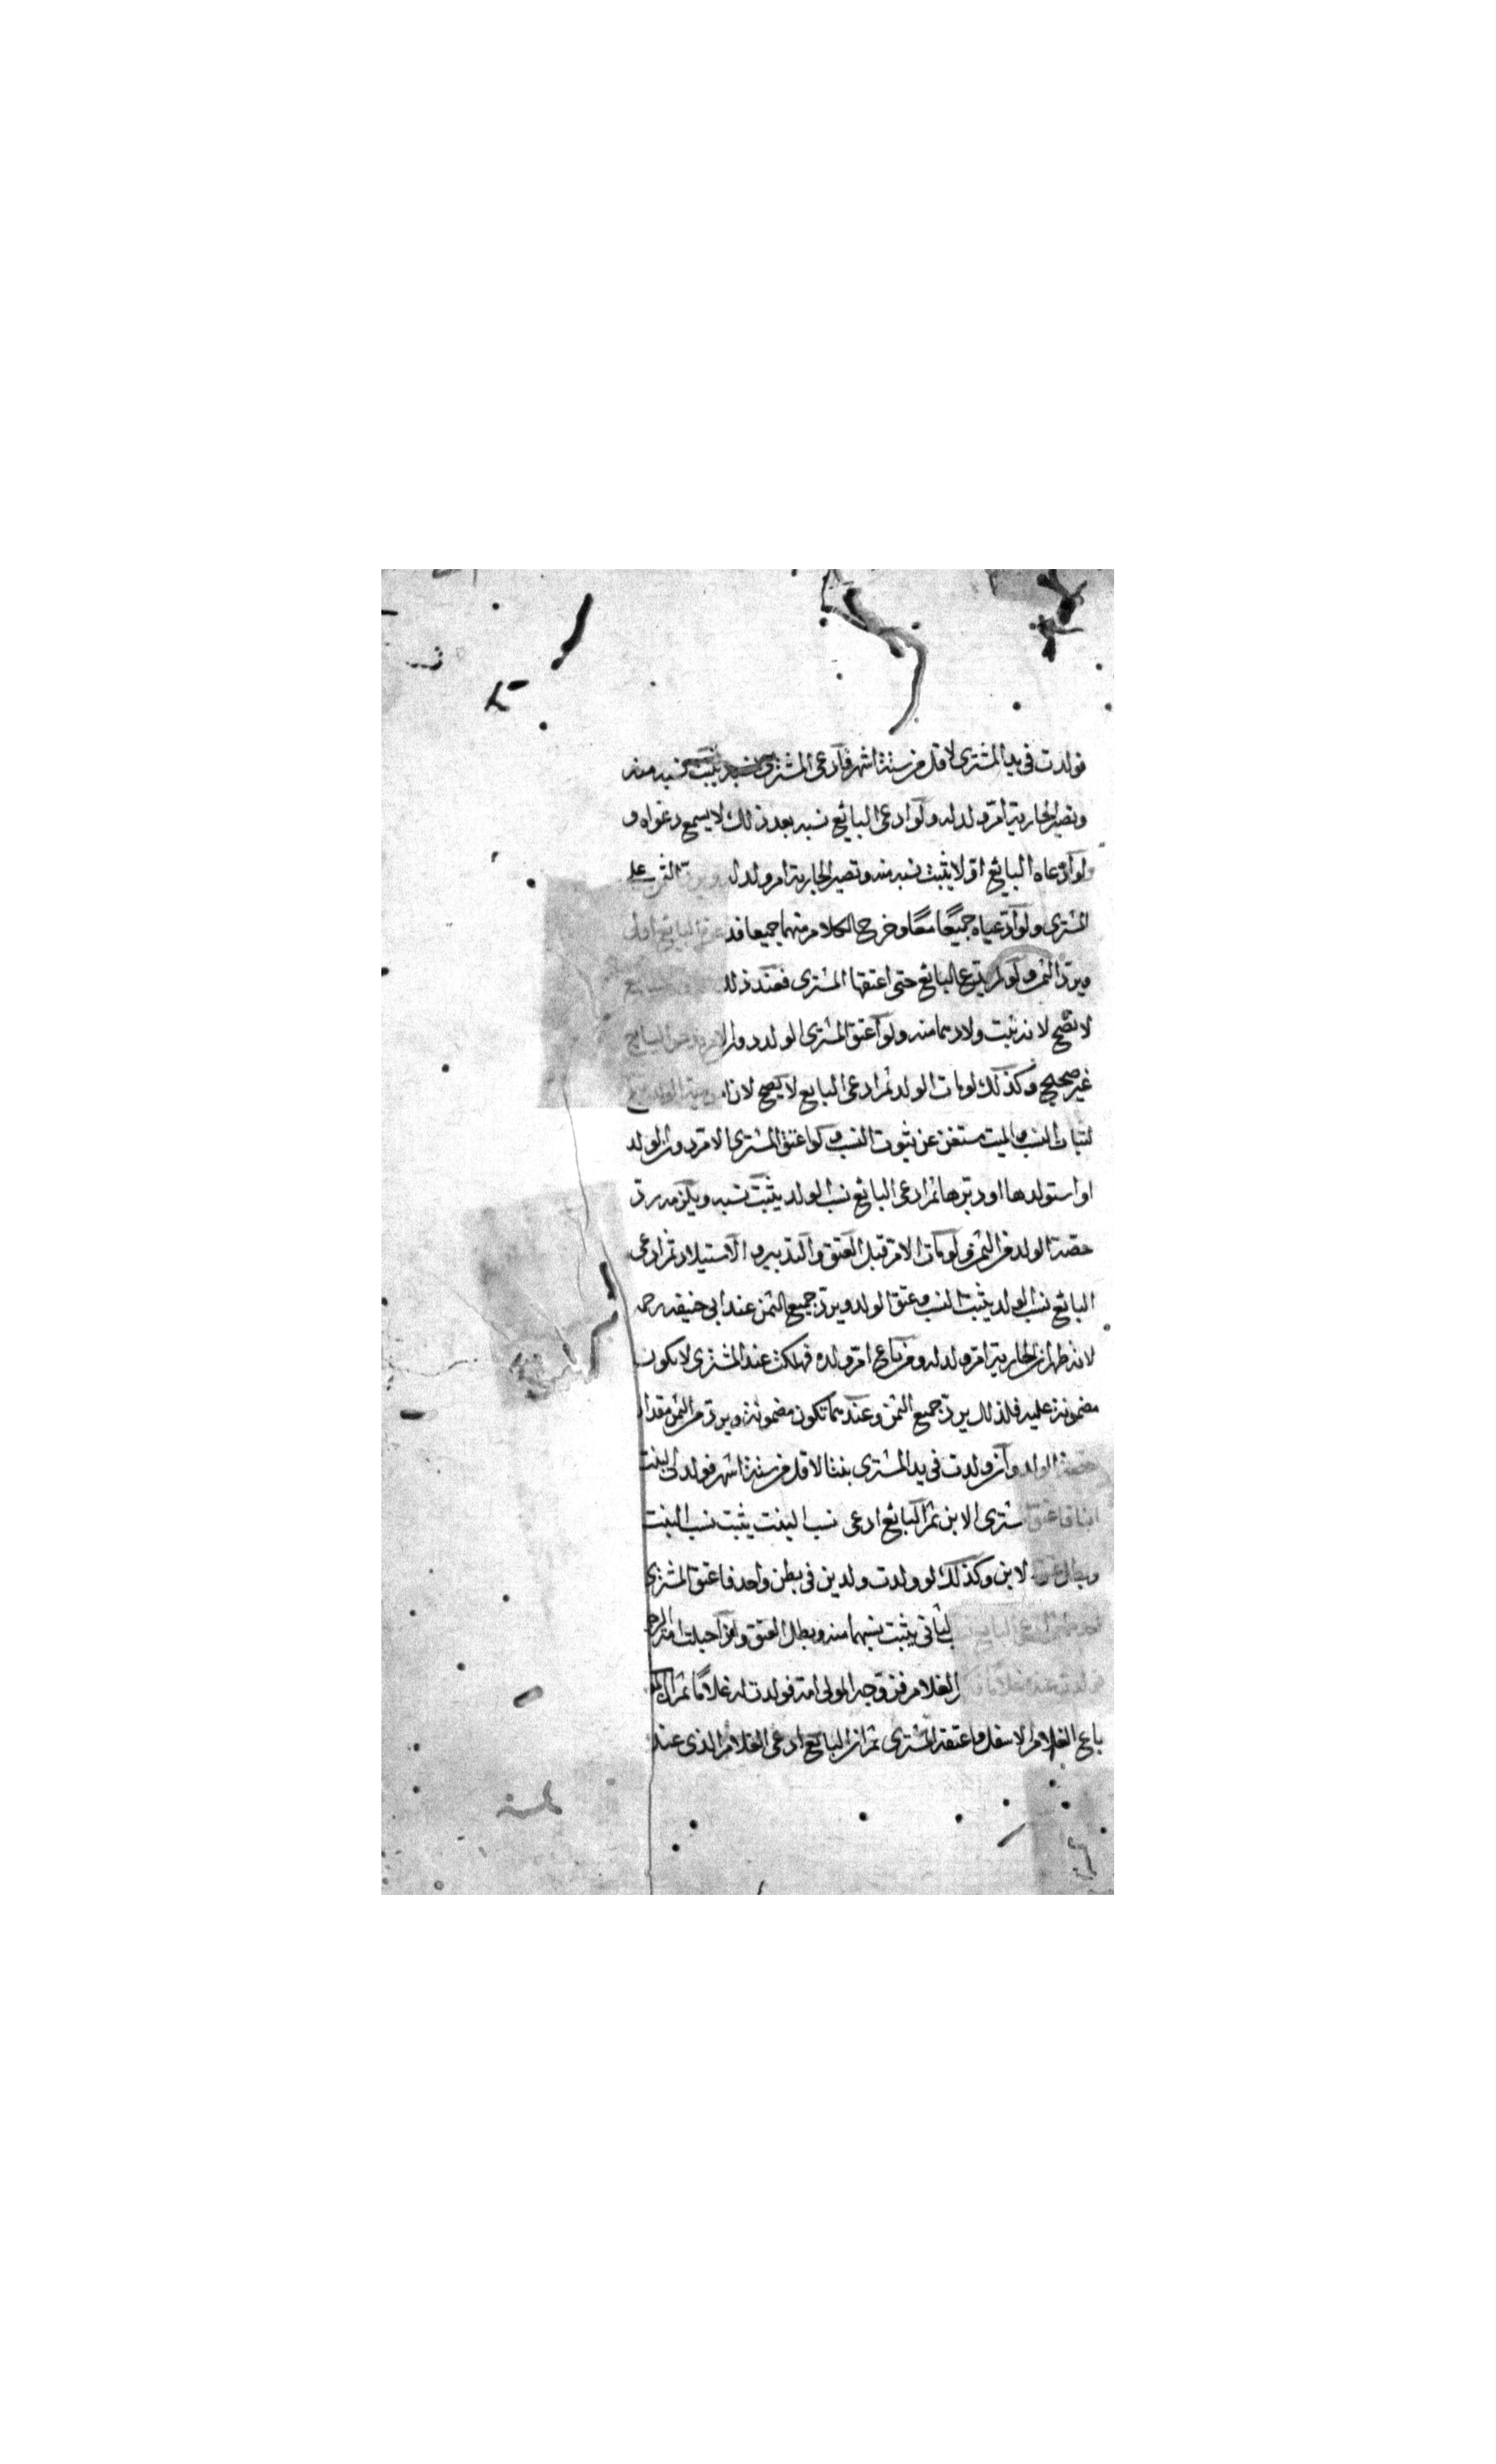 فولدت في يد المشتري لاقل من ستة اشهر فادعى المشتري يثبت نسبه منه
وتصير الجارية ام ولد له ولو ادعى البائع نسبه بعد ذلك لا يسمع دعواه و
ولو ادعاه البائع اولا يثبت نسبه منه وتصير الجارية ام ولد له ويرد الثمن على
المشتري ولو ادعياه جميعا معا وخرج الكلام منهما جميعا البائع اولى
ويرد الثمن ولو لم يدع البائع حتى اعتقها المشتري فعند
لا تصح لانه ثبت ولو اعتق المشتري الولد دون الام البائع
غير صحيح وكذلك لو مات الولد ثم ادعى البايع لا يصح لان
النسب والميت مستغن عن ثبوت النسب ولو اعتق المشتري الام دون الولد
او استولدها او دبرها ثم ادعى البائع نسب الولد يثبت نسبه ويلزمه رد
حصة الولد من الثمن ولو مات الام قبل العتق والتدبير والاستيلاد ثم ادعى
البائع نسب الولد يثبت النسب وعتق الولد ويرد جميع الثمن عند ابي حنيفه رحمه
لانه ظهر ان الجارية ام ولد له ومن باع ام ولده فهلكت عند المشتري لا تكون
مضمونة عليه فلذلك يرد جميع الثمن وعندهما تكون مضمونة ويرد من الثمن مقدار
حصة الولد وان ولدت في يد المشتري بنتا لاقل من ستة اشهر فولدت البنت
ابنا فاعتق المشتري الابن ثم البائع ادعى نسب البنت يثبت نسب البنت
وبطل عتق الابن وكذلك لو ولدت ولدين في بطن واحد فاعتق المشتري
البايع الثاني يثبت نسبهما منه وبطل العتق
فولدت عنده غلاما الغلام فزوجه المولى امة فولدت له غلاما ثم ان
باع الغلام الاسفل فاعتقه المشتري ثم ان البائع ادعى الغلام الذي عند